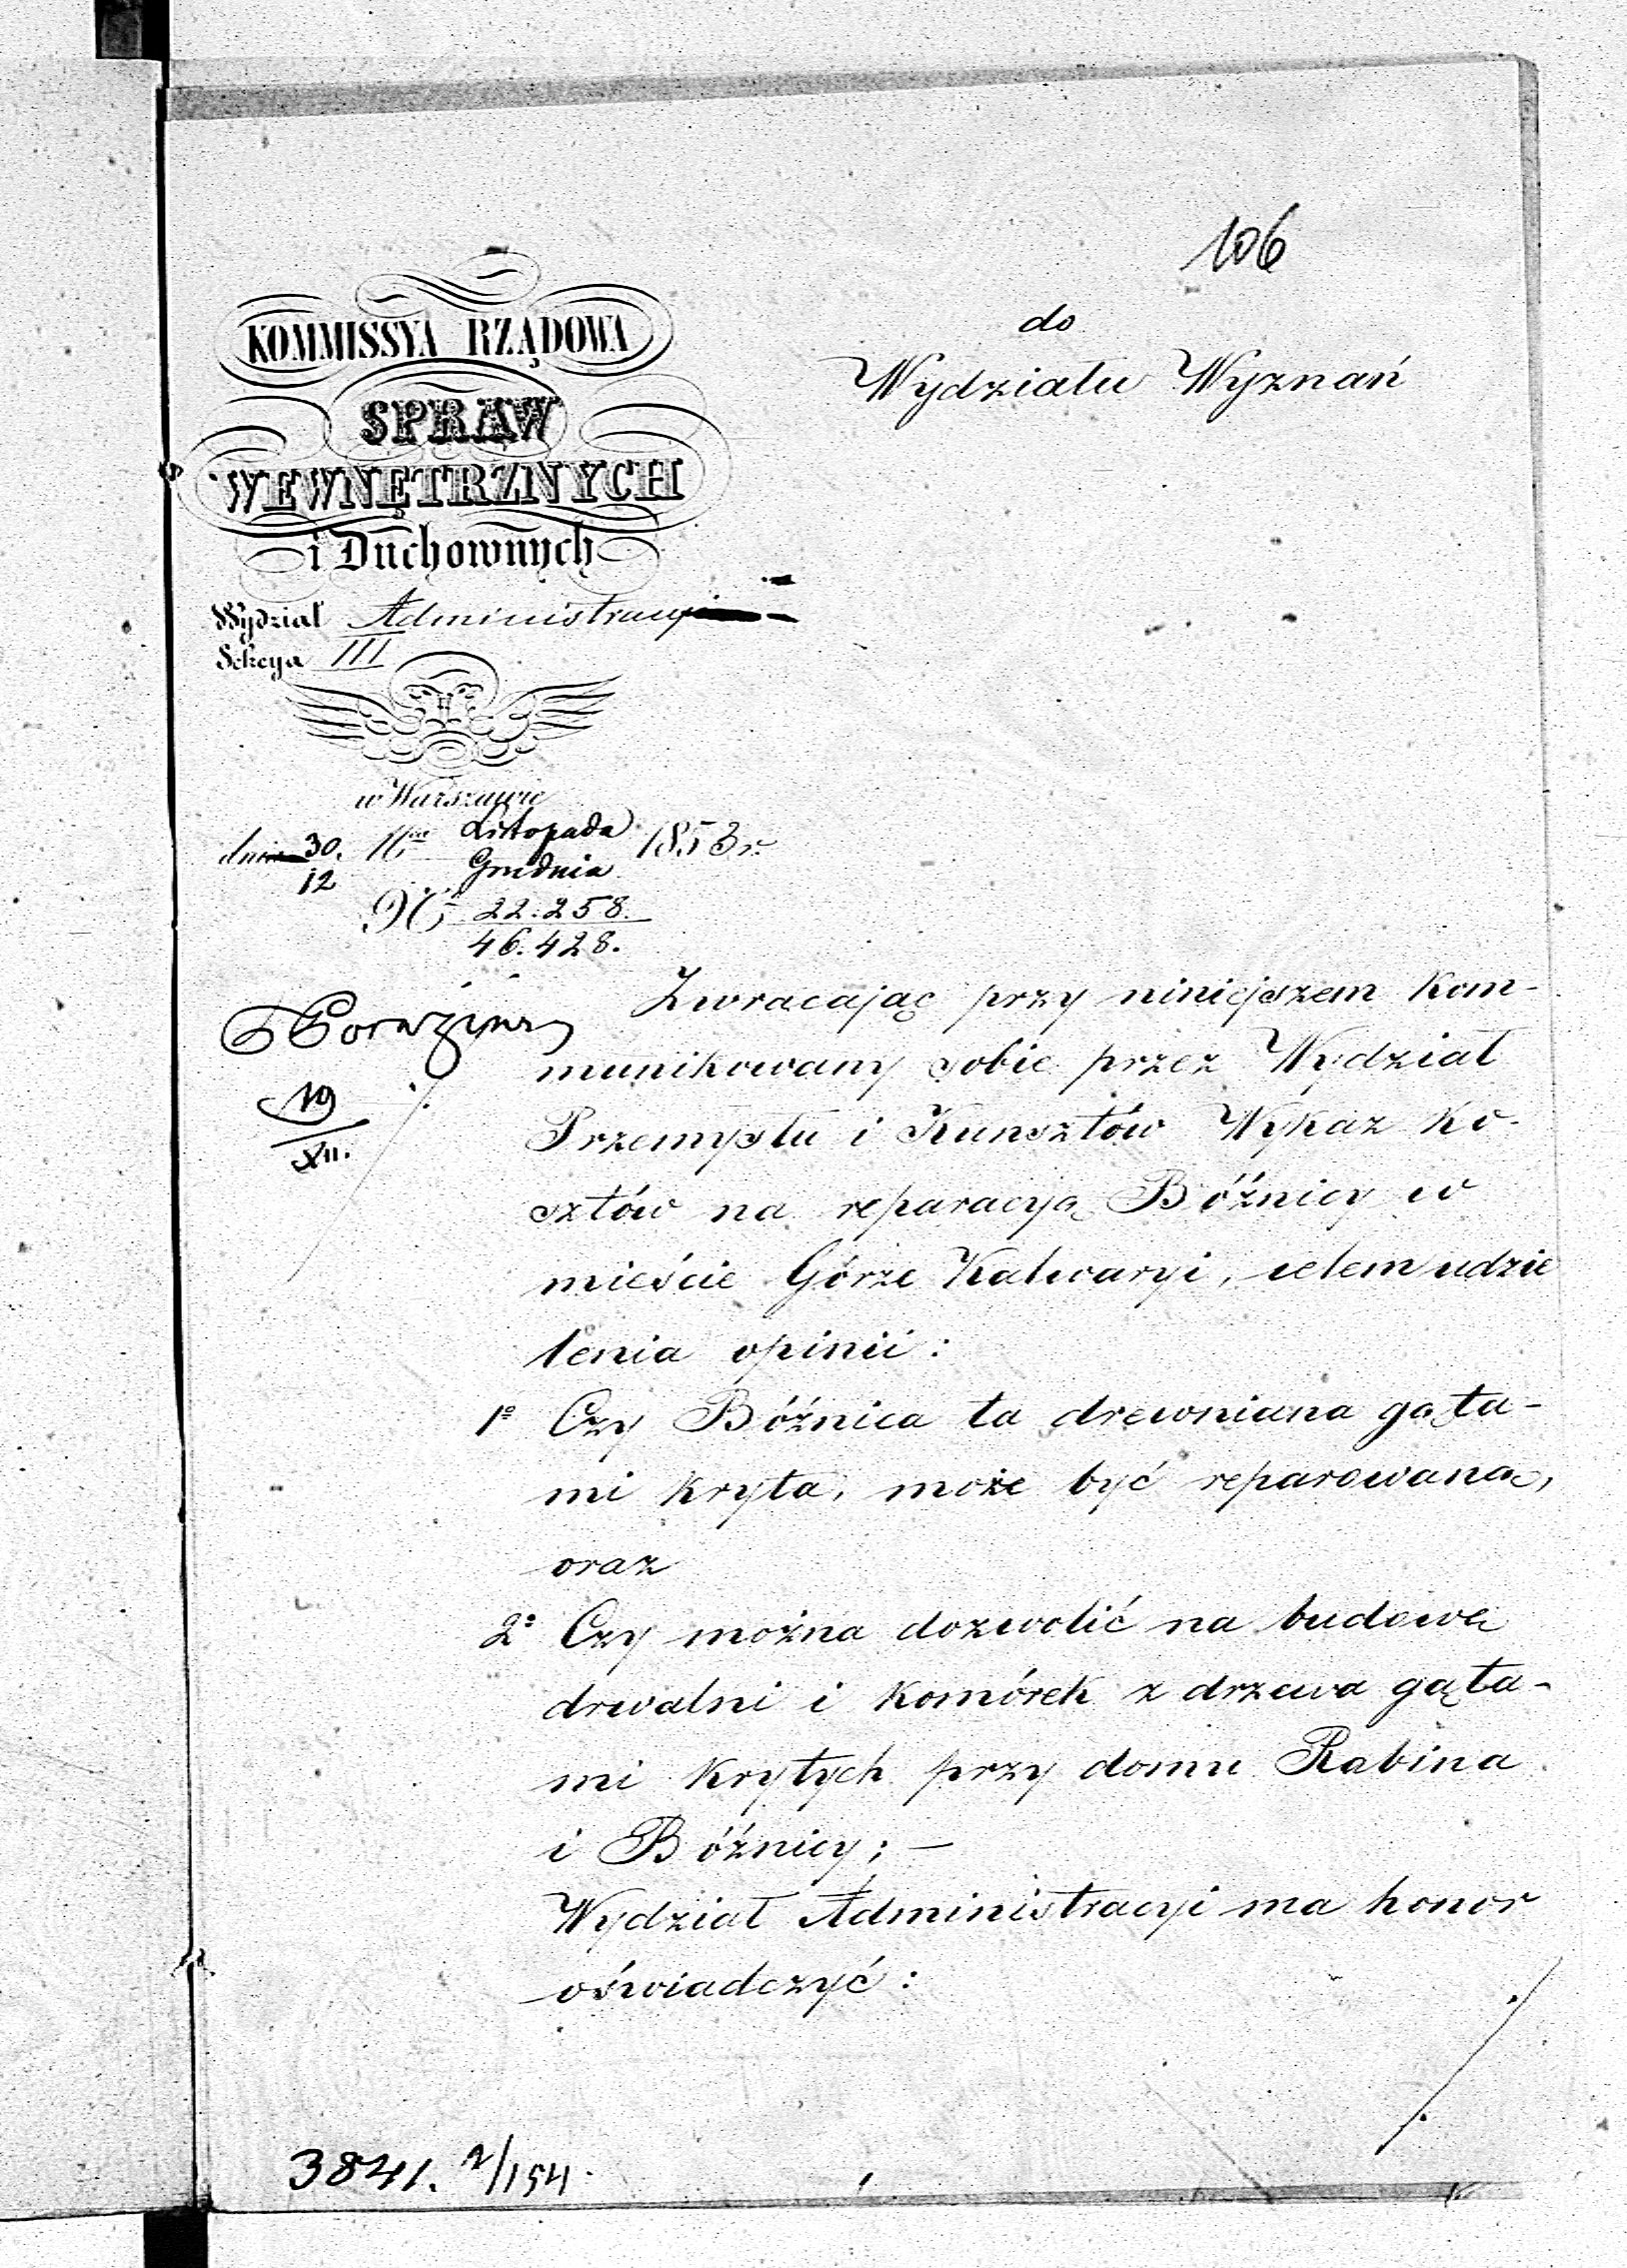 106
KOMMISSYA RZĄDOWA
SPRAW
WEWNĘTRZNYCH
i Duchownych
Wydział Administracyi
Sekcya III
w Warszawie
dnia 30. Listopada 1853 r.
12 Grudnia
No 22.258.
46.428.
do
Wydziału Wyznań
19
XII.
Zwracając przy niniejszem kom-
munikowany sobie przez Wydział
Przemysłu i Kunsztów Wykaz ko-
sztów na reparacyą Bóźnicy w
mieście Górze Kalwaryi, celem udzie
lenia opinii:
1o Czy Bóźnica ta drewniana gąta-
mi kryta, może być reparowana,
oraz
2o Czy można dozwolić na budowę
drwalni i komórek z drzewa gąta-
mi krytych przy domu Rabina
i Bóźnicy; —
Wydział Administracyi ma honor
oświadczyć:
3841. 2/154.